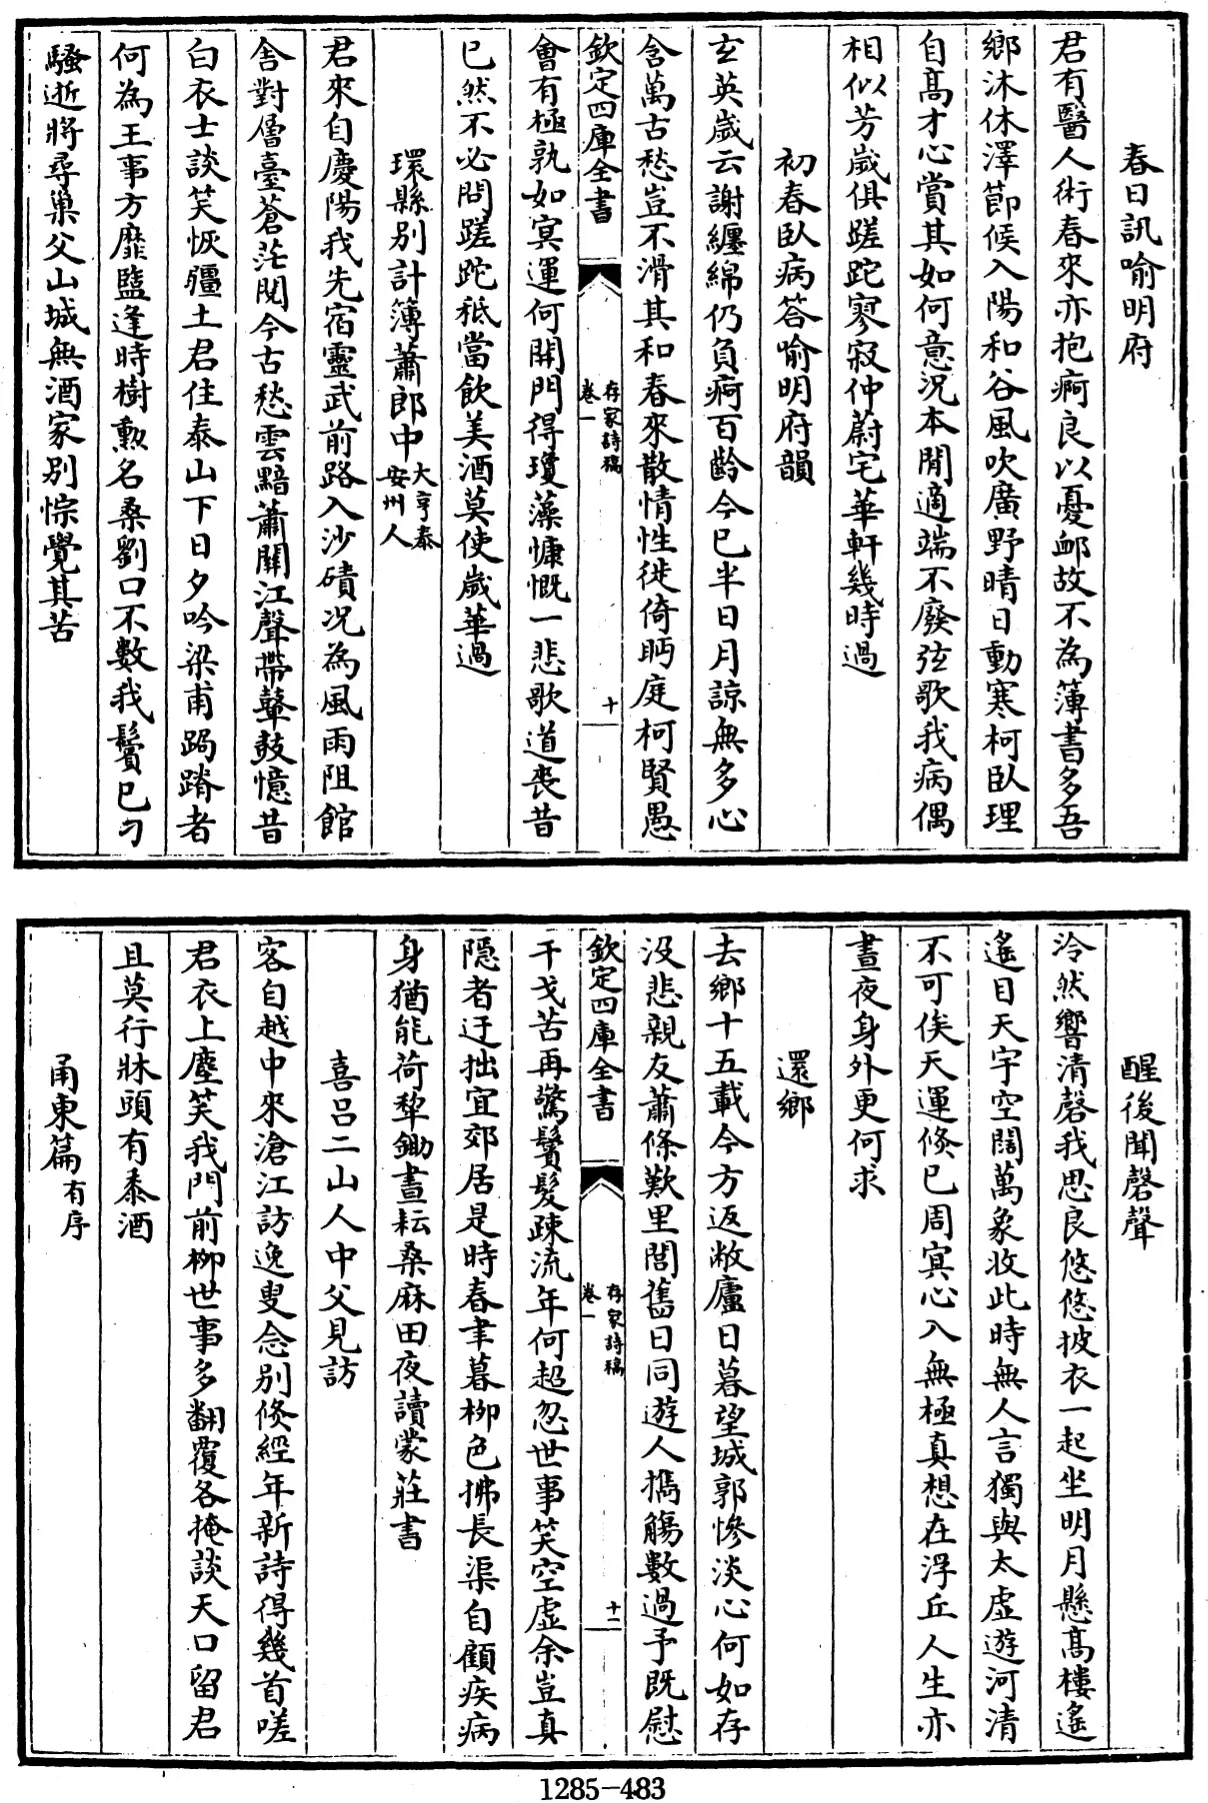 春日訊喻明府
君有醫人術春來亦抱痾良以憂䘏故不為薄書多吾
鄉沐休澤節候入陽和谷風吹廣野晴日動寒柯臥理
自髙才心賞其如何意況本閒適端不廢弦歌我病偶
相似芳歲俱蹉跎寥寂仲蔚宅華軒幾時過
初春臥病答喻明府韻
玄英歲云謝纏綿仍負痾百齡今已半日月諒無多心
含萬古愁豈不滑其和春來散情性徙倚眄庭柯賢愚
會有極孰如㝠運何開門得瓊藻慷慨一悲歌道喪昔
已然不必問蹉跎秪當飲美酒莫使歲華過
環縣别計簿蕭郎中大亨泰安州人
君來自慶陽我先宿靈武前路入沙磧况為風雨阻館
舎對層臺蒼茫閱今古愁雲黯蕭關江聲帶鼙鼓憶昔
白衣士談笑恢疆土君住泰山下日夕吟梁甫跼蹐者
何為王事方靡盬逢時樹勲名桑劉口不數我鬢已刁
騷逝將尋巢父山城無酒家别悰覺其苦
欽定四庫全書
存家詩稿
卷一
十
醒後聞磬聲
泠然響清磬我思良悠悠披衣一起坐明月懸髙樓遙
遙目天宇空闊萬象收此時無人言獨與太虛遊河清
不可俟天運倐已周㝠心入無極真想在浮丘人生亦
晝夜身外更何求
還鄉
去鄉十五載今方返敝廬日暮望城郭惨淡心何如存
没悲親友蕭條歎里閭舊日同遊人攜觴數過予既慰
干戈苦再驚鬢髮疎流年何超忽世事笑空虛余豈真
隠者迂拙宜郊居是時春聿暮柳色拂長渠自顧疾病
身猶能荷犂鋤晝耘桑麻田夜讀蒙莊書
喜吕二山人中父見訪
客自越中來滄江訪逸叟念别倐經年新詩得幾首嗟
君衣上塵笑我門前柳世事多翻覆各掩談天口留君
且莫行牀頭有黍酒
甬東篇有序
欽定四庫全書
存家詩稿
卷一
十一
1285-483